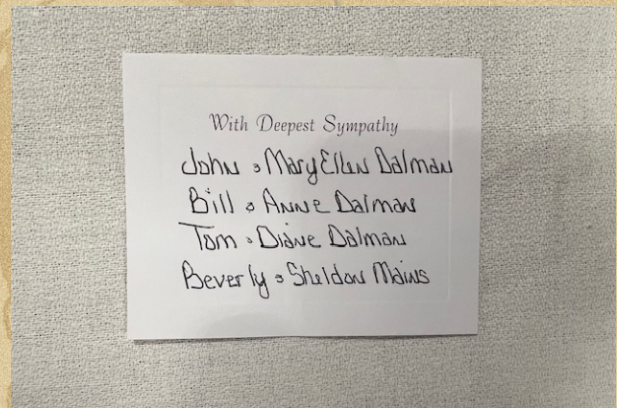 With Deepest Sympathy
John & Mary Ellen Dalman
Bill & Anne Dalman
Tom & Diane Dalman
Beverly & Sheldon Mains